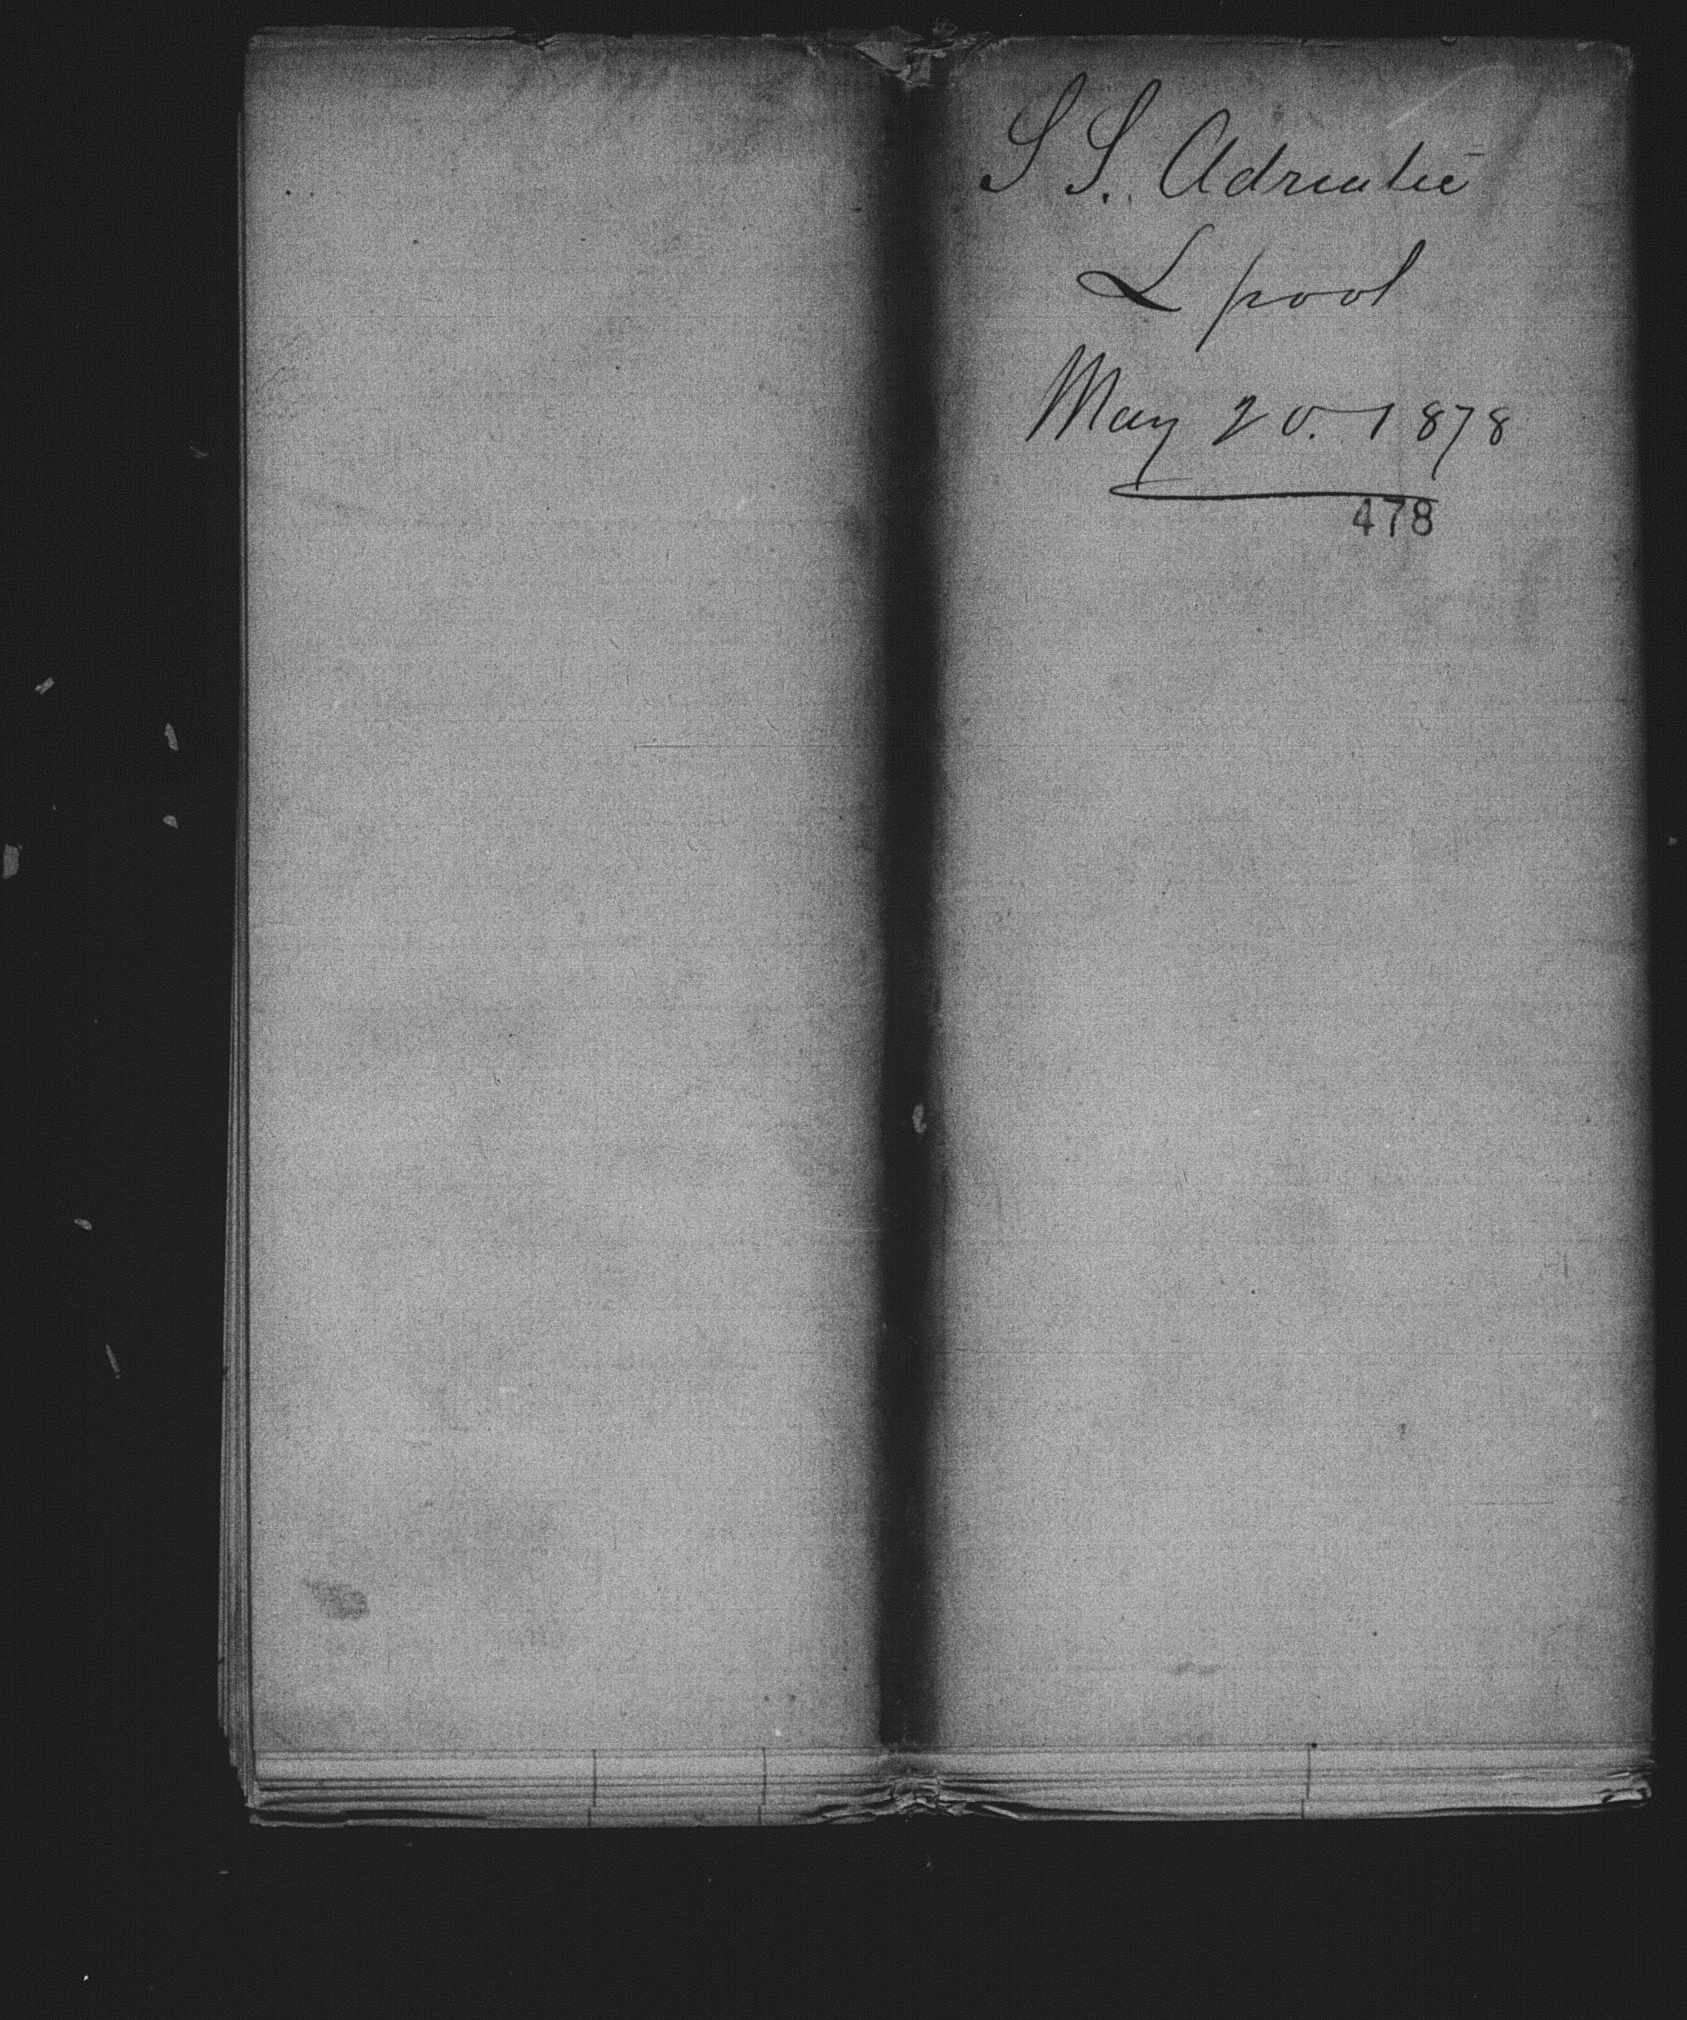 S S. Adriatic
L pool
May 20. 1878
478